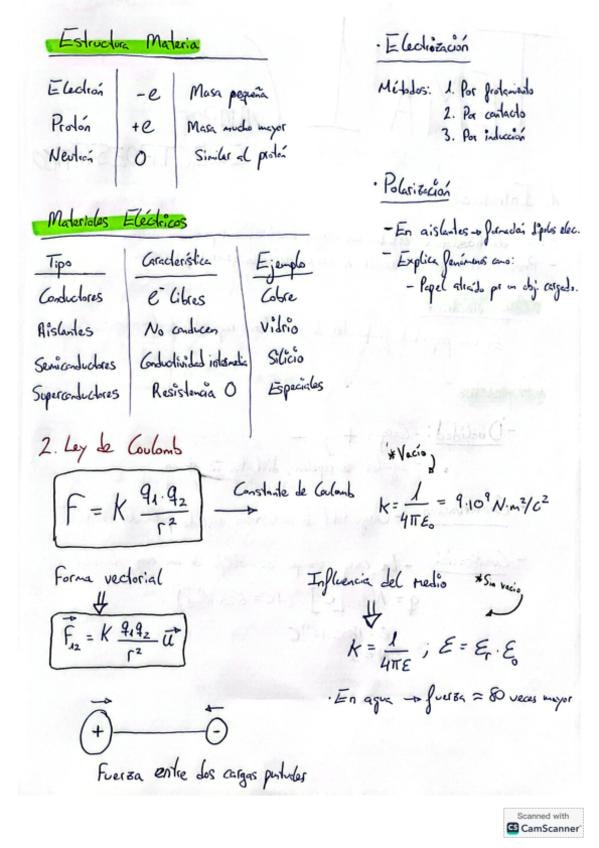 Estructura Materia
Electrón -e Masa pequeña
Protón +e Masa mucho mayor
Neutrón 0 Similar al protón
Materiales Eléctricos
Tipo Característica Ejemplo
Conductores e⁻ libres Cobre
Aislantes No conducen Vidrio
Semiconductores Conductividad intermedia Silicio
Superconductores Resistencia 0 Especiales
· Electrización
Métodos: 1. Por frotamiento
2. Por contacto
3. Por inducción
· Polarización
- En aislantes → formación dipolos elec.
- Explica fenómenos como:
- Papel atraído por un obj. cargado.
2. Ley de Coulomb
F = K q₁·q₂ / r² → Constante de Coulomb
*Vacío
K = 1 / 4πε₀ = 9·10⁹ N·m²/C²
Forma vectorial
F⃗₁₂ = K q₁q₂ / r² u⃗
Influencia del medio
*Sin vacío
K = 1 / 4πε ; ε = εᵣ · ε₀
· En agua → fuerza ≈ 80 veces mayor
+ -
Fuerza entre dos cargas puntuales
Scanned with
CS CamScanner